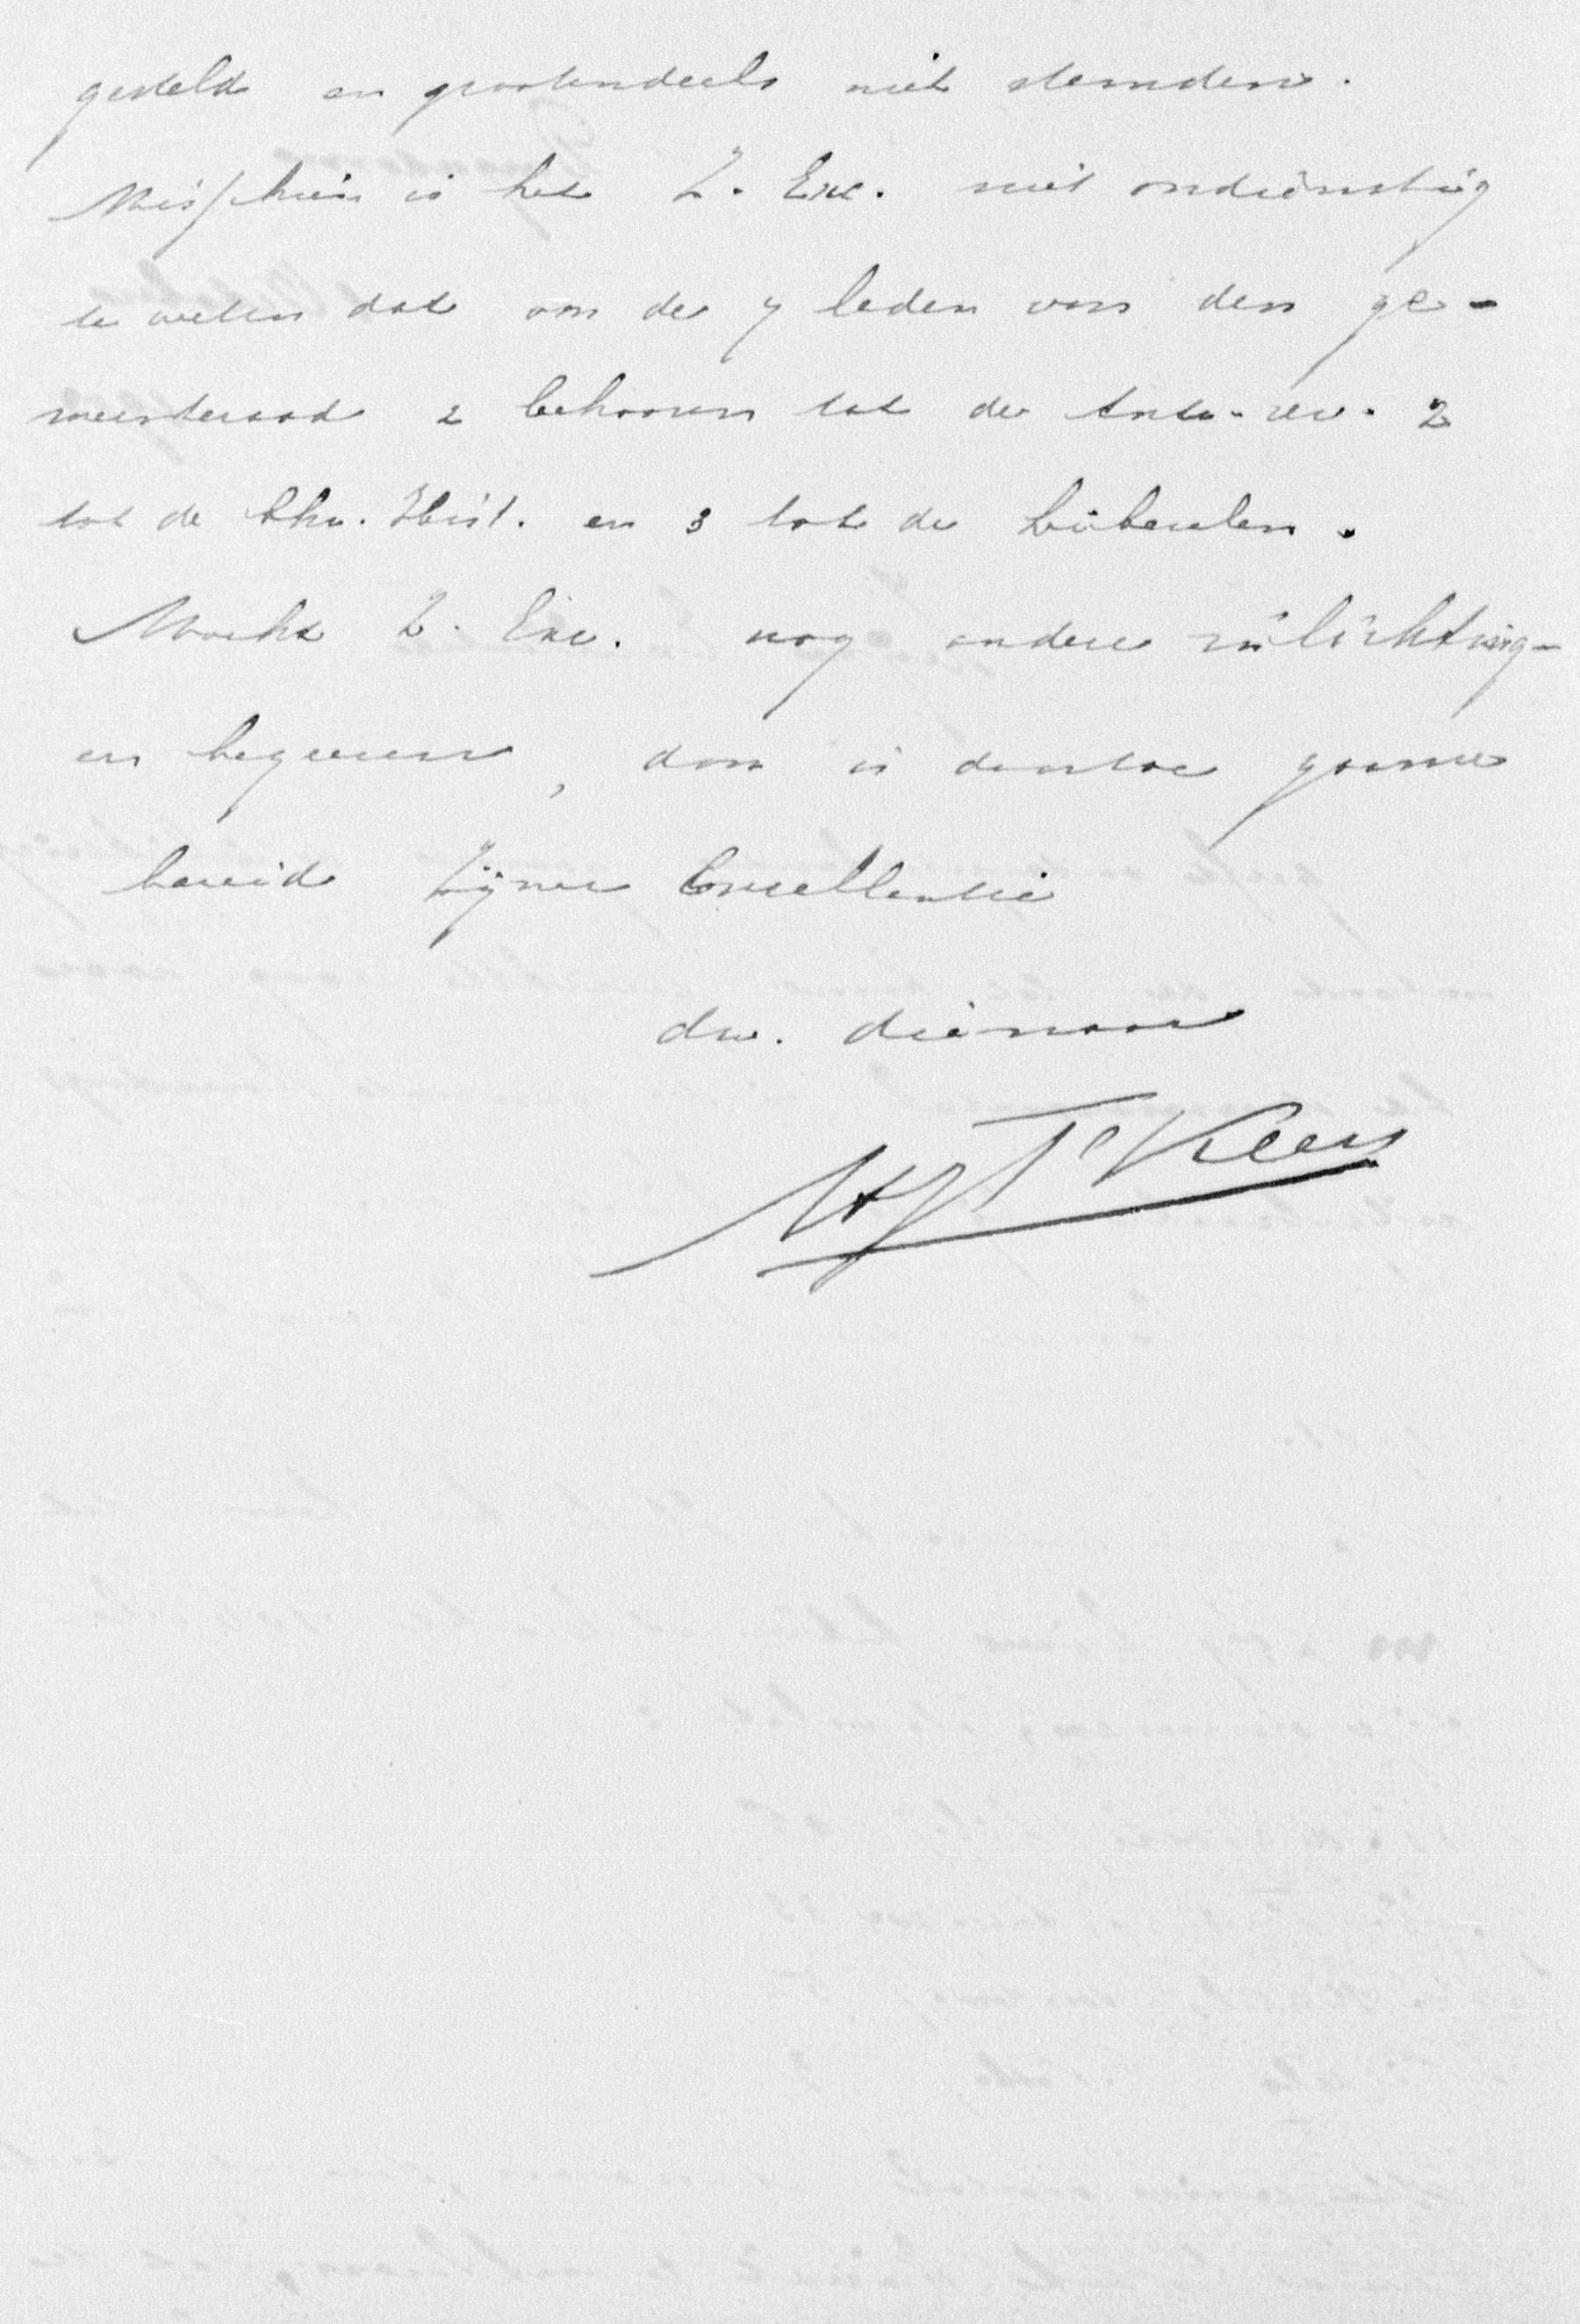 gesteld en grootendeels niet stemden.
Misschien is het Z. Exc. niet ondienstig
te weten dat van de 7 leden van den ge-
meenteraad 2 behooren tot de Anti-rev. 2
tot de Chr. Hist. en 3 tot de Liberalen.
Mocht Z. Exc. nog andere inlichting-
en begeeren, dan is daartoe gaarne
bereid Zijner Excellentie
dw. dienaar